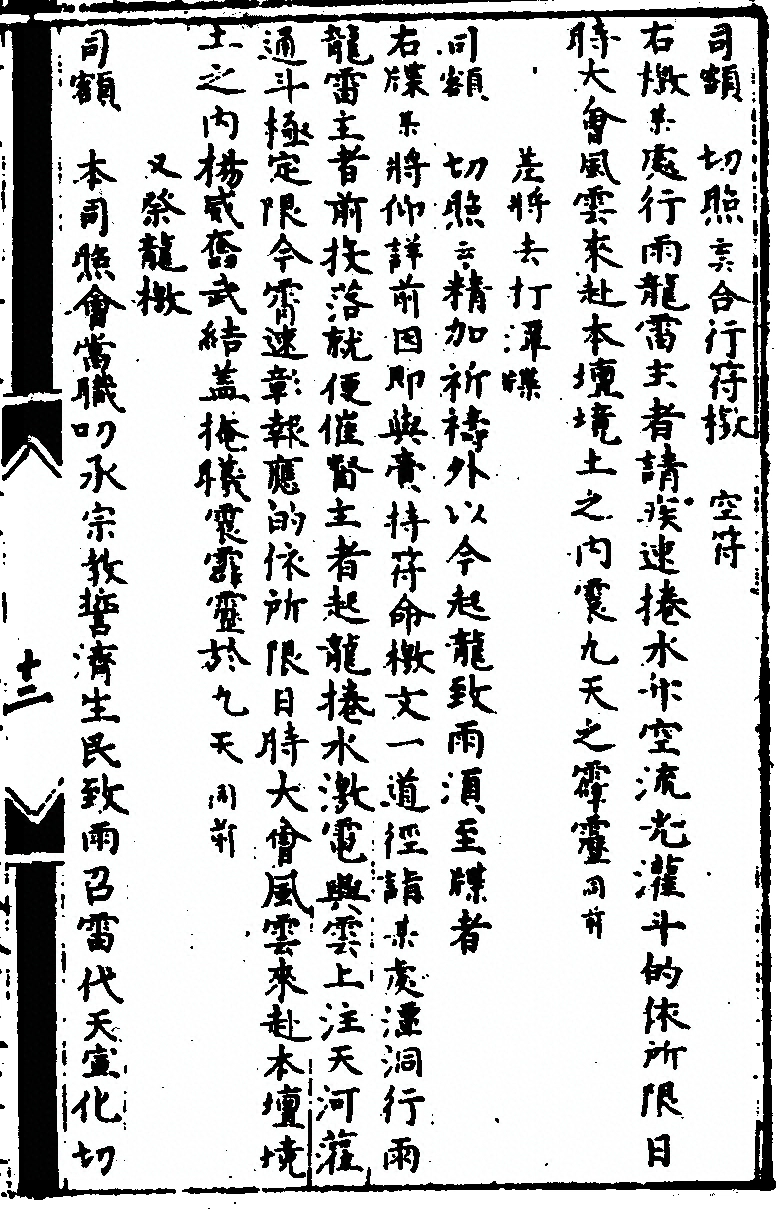 司額 切照云云合行符檄 空符
右檄某處行雨龍雷主者請疾速捲水冲空流光灌斗的依所限日
時大會風雲來赴本壇境土之內震九天之霹靂同前
差將去打潭牒
司額 切照云云精加祈禱外以今起龍致雨須至牒者
右牒某將仰詳前因即與賫持符命檄文一道徑詣某處潭洞行雨
龍雷主者前投落就便催督主者起龍捲水激電興雲上注天河灌
通斗極定限今霄速彰報應的依所限日時大會風雲來赴本壇境
土之內楊威奮武結蓋掩曦震霹靂於九天同前
又祭龍檄
司額 本司照會當職叨承宗教誓濟生民致雨召雷代天宣化切
十二